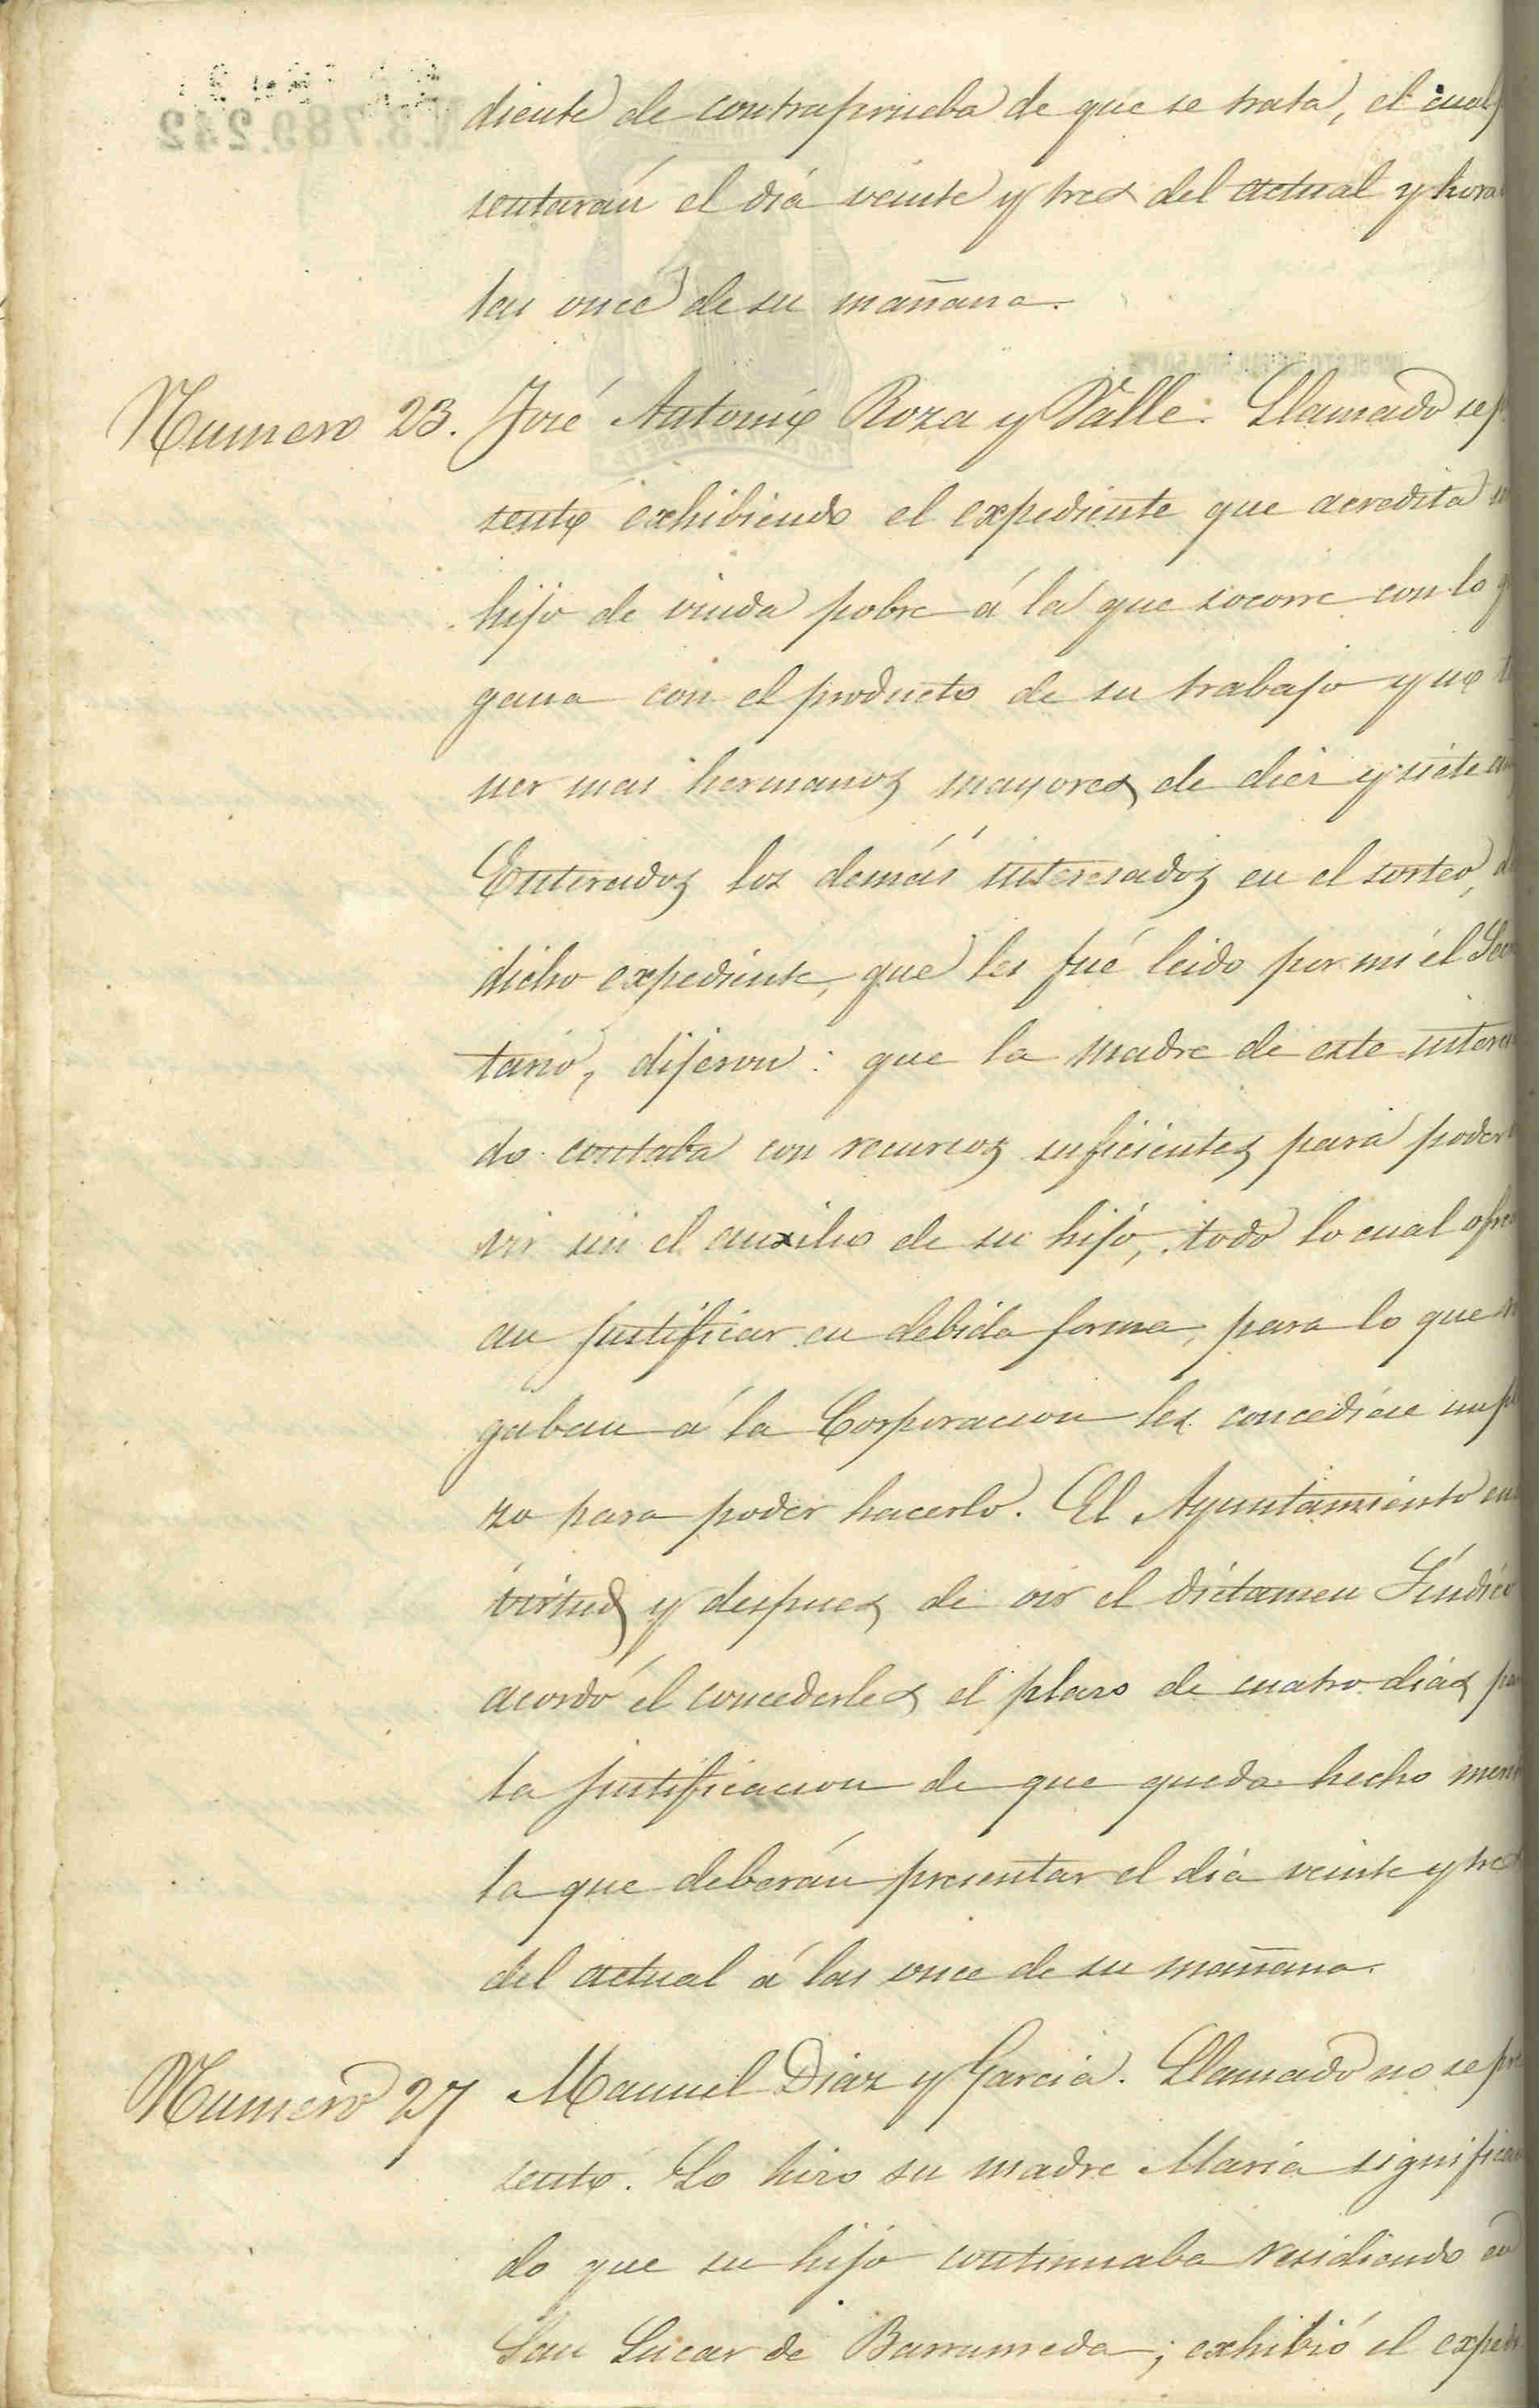 diente de contraprueba de que se trata, el cual
sentarán el dia veinte y tres del actual y hora
las once de su mañana.
Numero 23. José Antonio Roza y Valle. Llamado se p
sentó exhibiendo el expediente que acredita
hijo de viuda pobre á la que socorre con lo q
gana con el producto de su trabajo y no te
ner mas hermanos mayores de diez y siete añ
Enterados los demás interesados en el sorteo, de
dicho expediente, que les fué leido por mi él Secre
tario, dijeron: que la madre de este interesa
do contaba con recursos suficientes para poder
vir sin el auxilio de su hijo, todo lo cual ofrec
an justificar en debida forma, para lo que ro
gaban á la Corporacion les concediese un pla
zo para poder hacerlo. El Ayuntamiento en
virtud y despues de oir el dictamen Síndico
acordó él concederles el plazo de cuatro dias par
la justificacion de que queda hecho men
la que deberán presentar el dia veinte y tres
del actual á las once de su mañana.
Numero 27 Manuel Diaz y Garcia. Llamado no se pre
sentó. Lo hizo su madre Maria significan
do que su hijo continuaba residiendo en
San Lucar de Barrumeda; exhibió el expedi
8.789.242